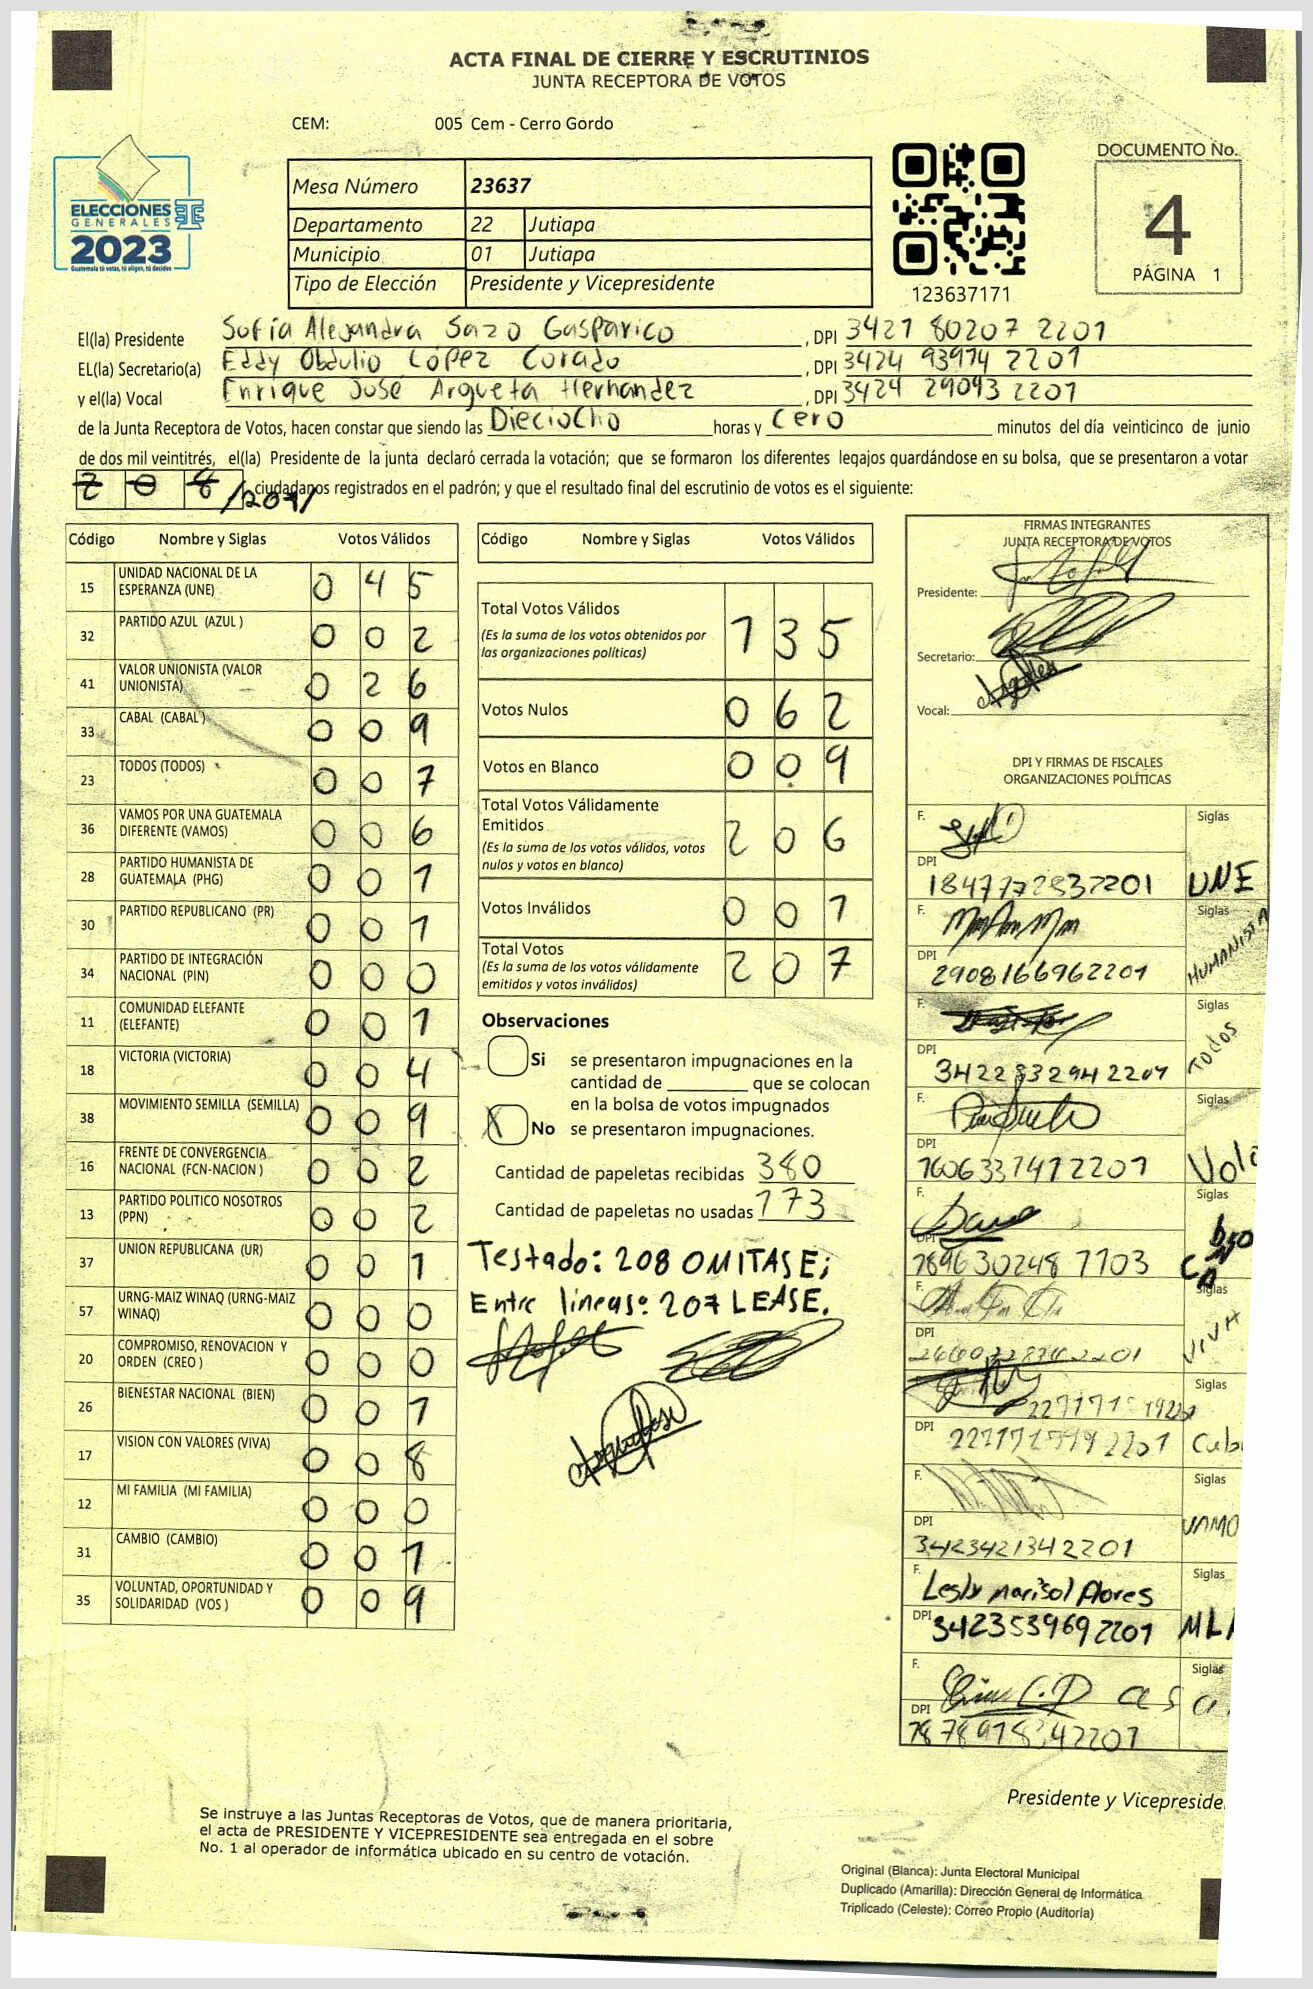 ACTA FINAL DE CIERRE Y ESCRUTINIOS
JUNTA RECEPTORA DE VOTOS
CEM: 005 Cem - Cerro Gordo
ELECCIONES
GENERALES
2023
Guatemala tú votas, tú eliges, tú decides
Mesa Número 23637
Departamento 22 Jutiapa
Municipio 01 Jutiapa
Tipo de Elección Presidente y Vicepresidente
123637171
DOCUMENTO No.
4
PÁGINA 1
El(la) Presidente Sofía Alejandra Sazo Gasparico, DPI 3421 80207 2201
EL(la) Secretario(a) Eddy Obdulio López Corado, DPI 3424 93974 2201
y el(la) Vocal Enrique José Argueta Hernandez, DPI 3424 29093 2201
de la Junta Receptora de Votos, hacen constar que siendo las Dieciocho horas y Cero minutos del día veinticinco de junio
de dos mil veintitrés, el(la) Presidente de la junta declaró cerrada la votación; que se formaron los diferentes legajos guardándose en su bolsa, que se presentaron a votar
2 0 8 /207/ ciudadanos registrados en el padrón; y que el resultado final del escrutinio de votos es el siguiente:
Código Nombre y Siglas Votos Válidos
15 UNIDAD NACIONAL DE LA ESPERANZA (UNE) 0 4 5
32 PARTIDO AZUL (AZUL ) 0 0 2
41 VALOR UNIONISTA (VALOR UNIONISTA) 0 2 6
33 CABAL (CABAL ) 0 0 9
23 TODOS (TODOS) 0 0 7
36 VAMOS POR UNA GUATEMALA DIFERENTE (VAMOS) 0 0 6
28 PARTIDO HUMANISTA DE GUATEMALA (PHG) 0 0 1
30 PARTIDO REPUBLICANO (PR) 0 0 1
34 PARTIDO DE INTEGRACIÓN NACIONAL (PIN) 0 0 0
11 COMUNIDAD ELEFANTE (ELEFANTE) 0 0 1
18 VICTORIA (VICTORIA) 0 0 4
38 MOVIMIENTO SEMILLA (SEMILLA) 0 0 9
16 FRENTE DE CONVERGENCIA NACIONAL (FCN-NACION ) 0 0 2
13 PARTIDO POLITICO NOSOTROS (PPN) 0 0 2
37 UNION REPUBLICANA (UR) 0 0 1
57 URNG-MAIZ WINAQ (URNG-MAIZ WINAQ) 0 0 0
20 COMPROMISO, RENOVACION Y ORDEN (CREO ) 0 0 0
26 BIENESTAR NACIONAL (BIEN) 0 0 1
17 VISION CON VALORES (VIVA) 0 0 8
12 MI FAMILIA (MI FAMILIA) 0 0 0
31 CAMBIO (CAMBIO) 0 0 1
35 VOLUNTAD, OPORTUNIDAD Y SOLIDARIDAD (VOS ) 0 0 9
Código Nombre y Siglas Votos Válidos
Total Votos Válidos 1 3 5
(Es la suma de los votos obtenidos por
las organizaciones políticas)
Votos Nulos 0 6 2
Votos en Blanco 0 0 9
Total Votos Válidamente
Emitidos 2 0 6
(Es la suma de los votos válidos, votos
nulos y votos en blanco)
Votos Inválidos 0 0 1
Total Votos 2 0 7
(Es la suma de los votos válidamente
emitidos y votos inválidos)
Observaciones
Si se presentaron impugnaciones en la
cantidad de ________ que se colocan
en la bolsa de votos impugnados
X No se presentaron impugnaciones.
Cantidad de papeletas recibidas 380
Cantidad de papeletas no usadas 173
Testado: 208 OMITASE;
Entre lineas: 207 LEASE.
FIRMAS INTEGRANTES
JUNTA RECEPTORA DE VOTOS
Presidente:
Secretario:
Vocal:
DPI Y FIRMAS DE FISCALES
ORGANIZACIONES POLÍTICAS
F. Siglas
DPI 1847772832201 UNE
F. Siglas
DPI 2908166962201 HUMANISTA
F. Siglas
DPI 3422832942201 TODOS
F. Siglas
DPI 1606337412201
F. Siglas
DPI 1896302487703
F. Siglas
DPI VIVA
Siglas
DPI
F. Siglas
DPI 3423421342201 VAMO
F. Lesly Marisol Flores Siglas
DPI 3423539692201
F. Siglas
DPI
Presidente y Vicepreside
Se instruye a las Juntas Receptoras de Votos, que de manera prioritaria,
el acta de PRESIDENTE Y VICEPRESIDENTE sea entregada en el sobre
No. 1 al operador de informática ubicado en su centro de votación.
Original (Blanca): Junta Electoral Municipal
Duplicado (Amarilla): Dirección General de Informática
Triplicado (Celeste): Correo Propio (Auditoría)